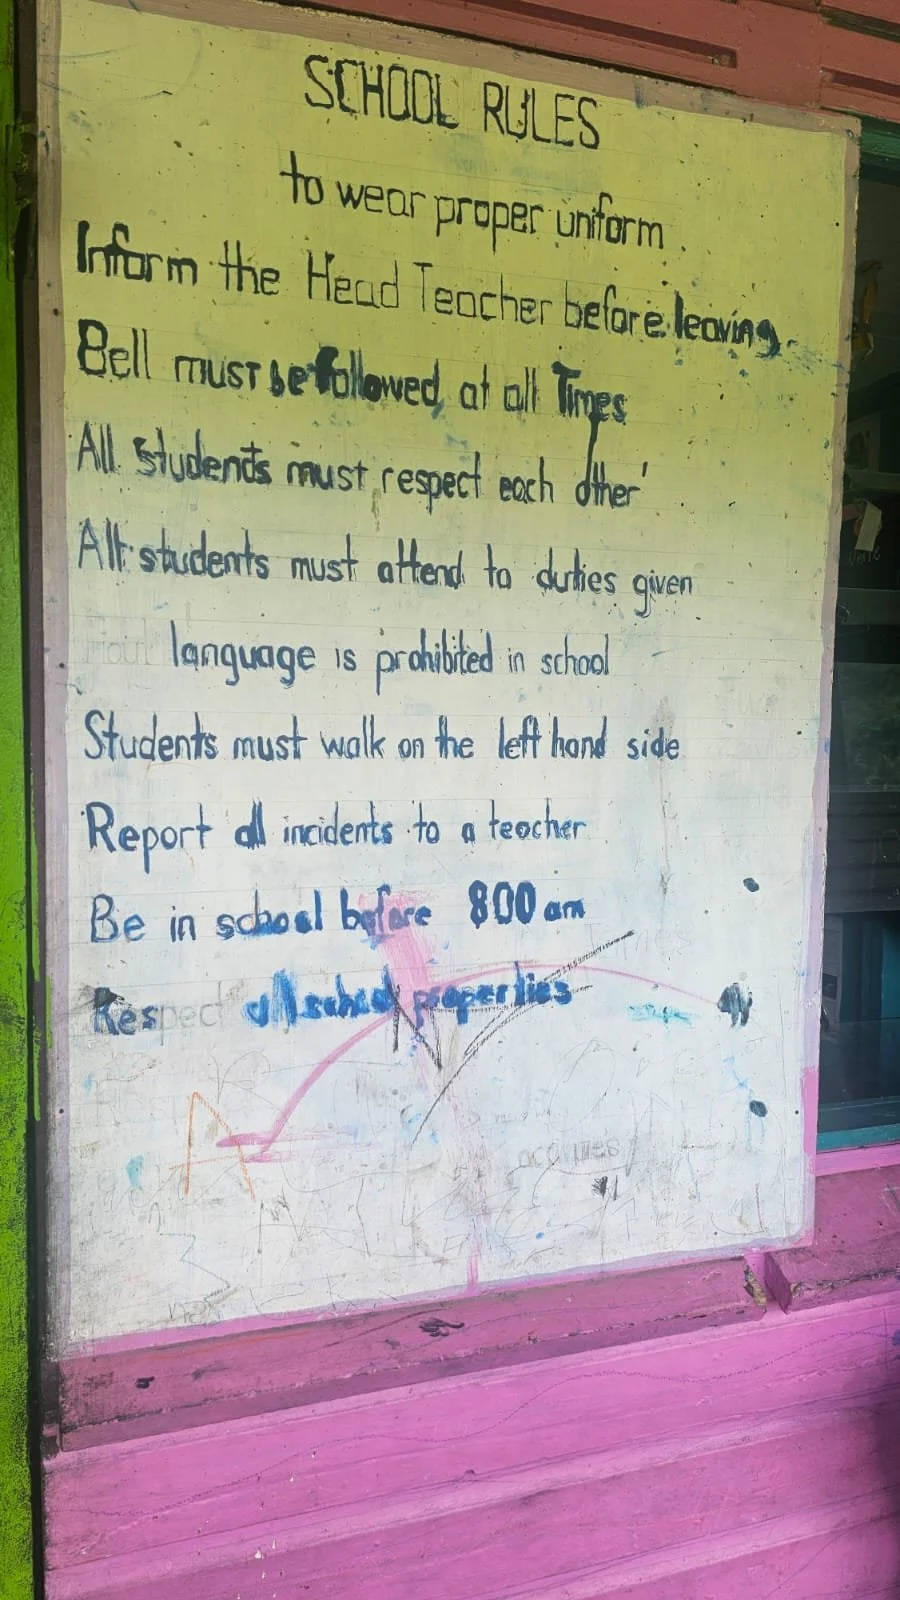 SCHOOL RULES
to wear proper uniform.
Inform the Head Teacher before leaving.
Bell must be followed at all Times
All students must respect each other'
All students must attend to duties given
Foul language is prohibited in school
Students must walk on the left hand side
Report all incidents to a teacher
Be in school before 800 am
Respect all school properties